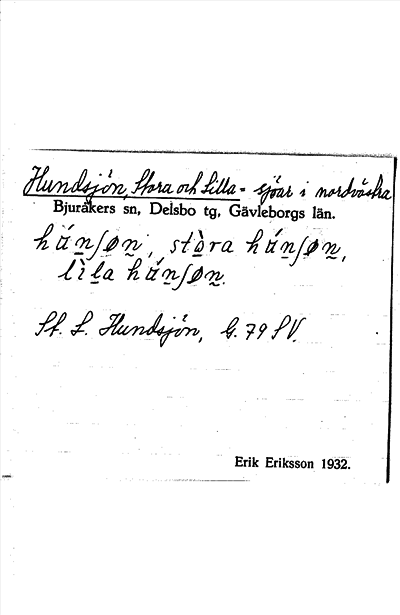 Hundsjön, Stora och Lilla - sjöar i nordvästra
Bjuråkers sn, Delsbo tg, Gävleborgs län.
hún̲ʃøn̲, stòra hún̲ʃøn̲,
lìl̲a hún̲ʃøn̲.
St. L. Hundsjön, G. 79 SV.
Erik Eriksson 1932.